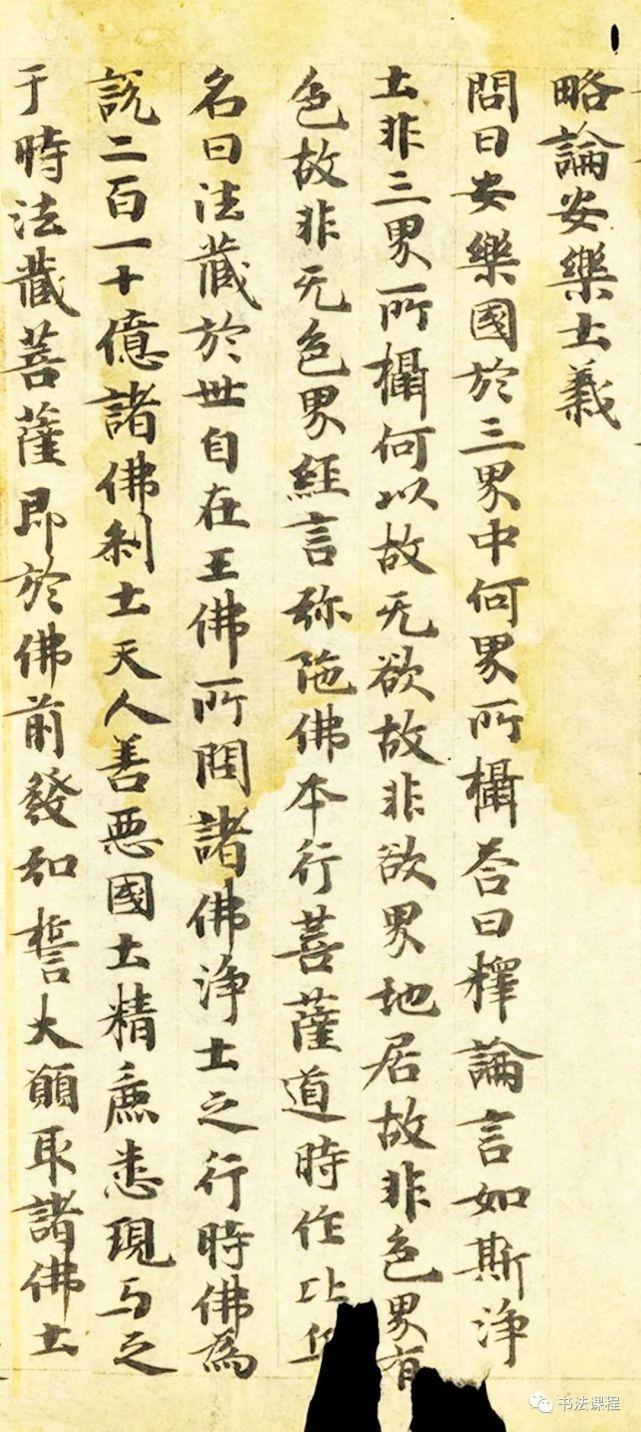 略論安樂土義
問曰安樂國於三界中何界所攝荅曰釋論言如斯淨
土非三界所攝何以故无欲故非欲界地居故非色界有
色故非无色界經言弥陁佛本行菩薩道時作比丘
名曰法藏於世自在王佛所問諸佛淨土之行時佛為
說二百一十億諸佛刹土天人善惡國土精麁悉現与之
于時法藏菩薩即於佛前發弘誓大願取諸佛土
书法课程